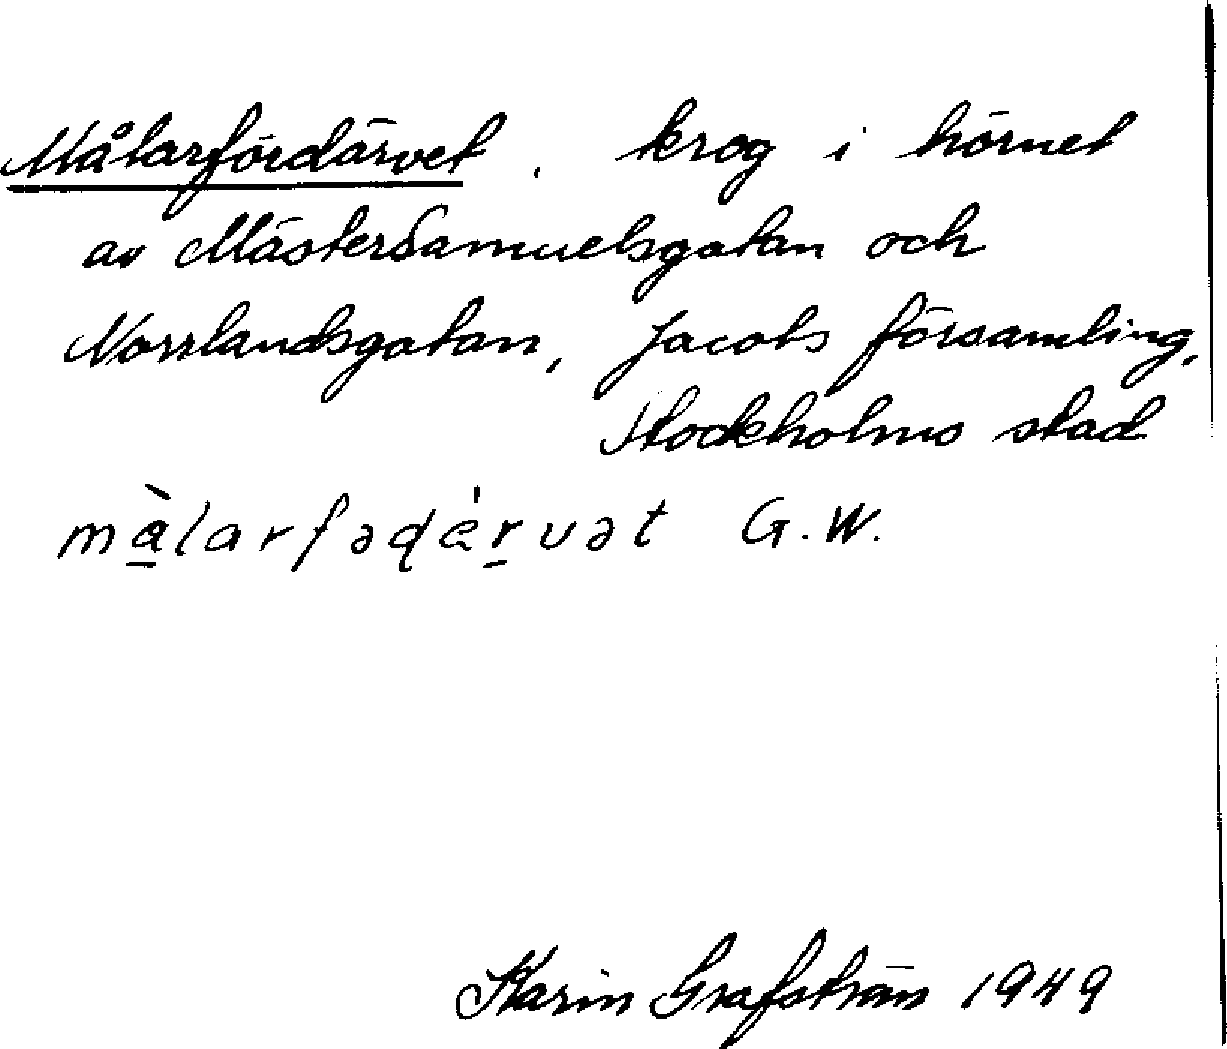 Målarfördärvet, krog i hörnet
av MästerSamuelsgatan och
Norrlandsgatan, Jacobs församling,
Stockholms stad
G.W.
Karin Grafström 1949